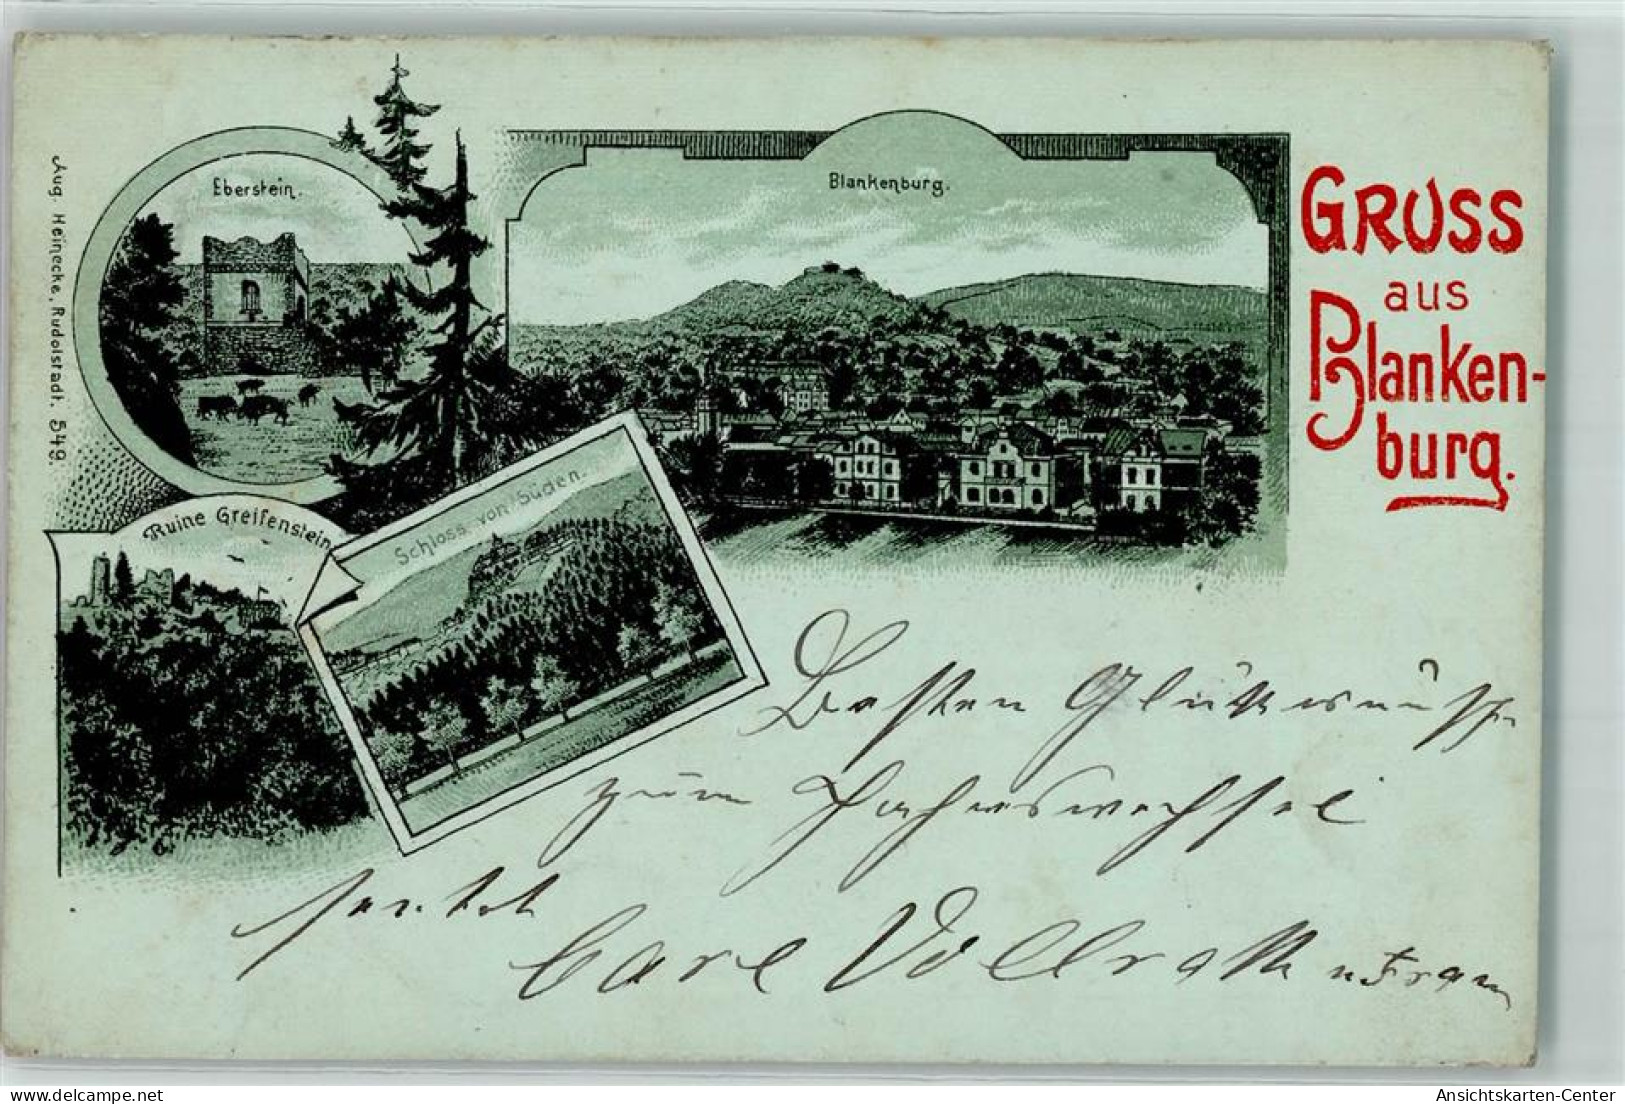 Aug. Heinecke, Rudolstadt. 549.
Eberstein.
Blankenburg.
GRUSS
aus
Blanken-
burg.
Ruine Greifenstein
Schloss von Süden.
Besten Glückwunsch
zum Jahreswechsel
sendet
Carl Vollrath u Frau
delcampe.net
Ansichtskarten-Center